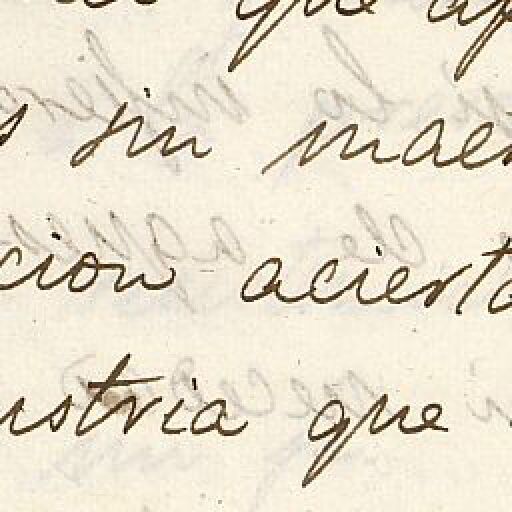 que ap
s sin maes
cion acierta
ustria que